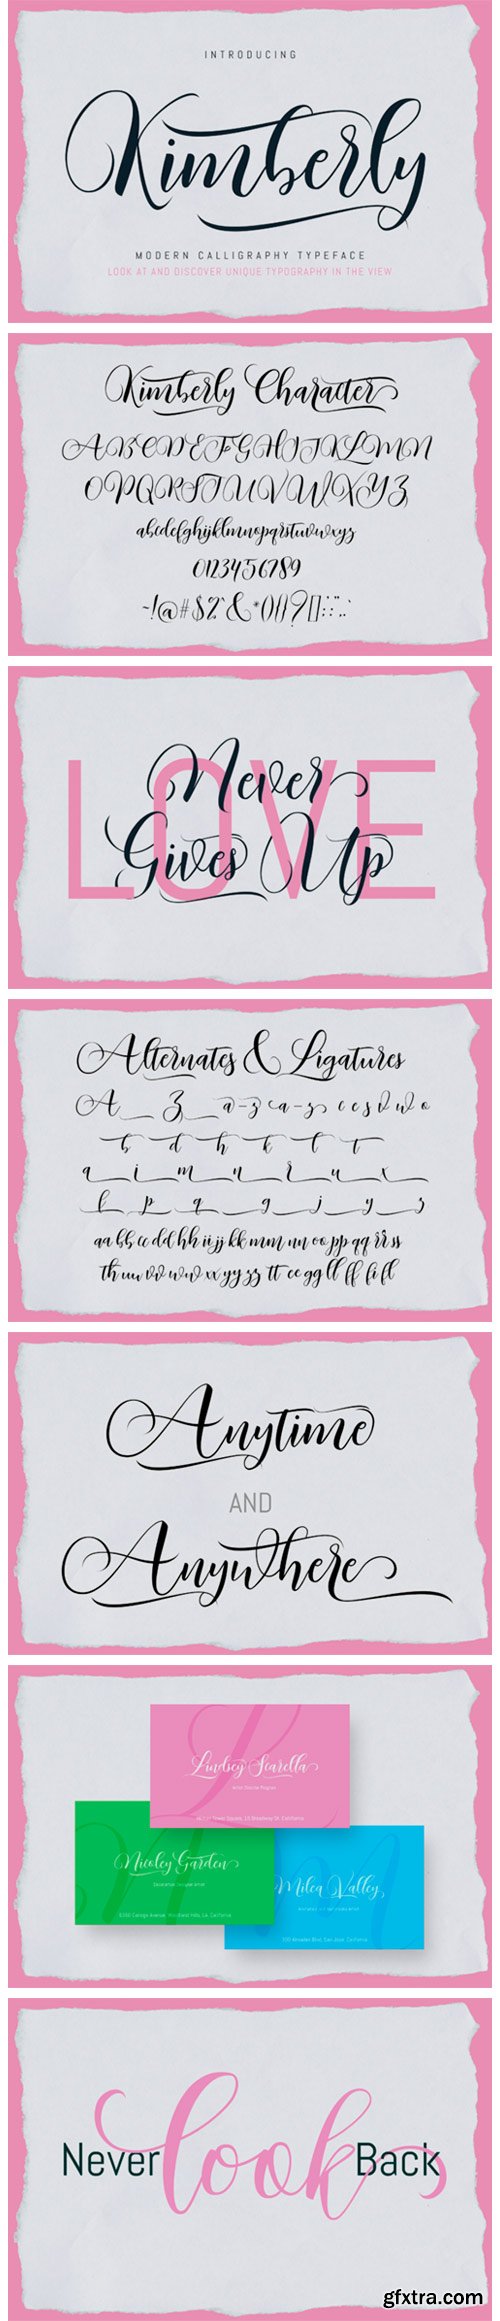 INTRODUCING
Kimberly
MODERN CALLIGRAPHY TYPEFACE
LOOK AT AND DISCOVER UNIQUE TYPOGRAPHY IN THE VIEW
Kimberly Character
ABCDEFGHIJKLMN
OPQRSTUVWXYZ
abcdefghijklmnopqrstuvwxyz
0123456789
LOVE
Never
Gives Up
Alternates & Ligatures
A_ Z_ a-z a-z c e s v w o
b d h k l t
a i m n r u x
h p q g j y s
aa bb cc dd hh ii jj kk mm nn oo pp qq rr ss
th uu vv ww xx yy zz tt ee gg ll ff fi fl
Anytime
AND
Anywhere
Lindsey Scarella
Nicoley Garden
Milea Valley
Never look Back
gfxtra.com